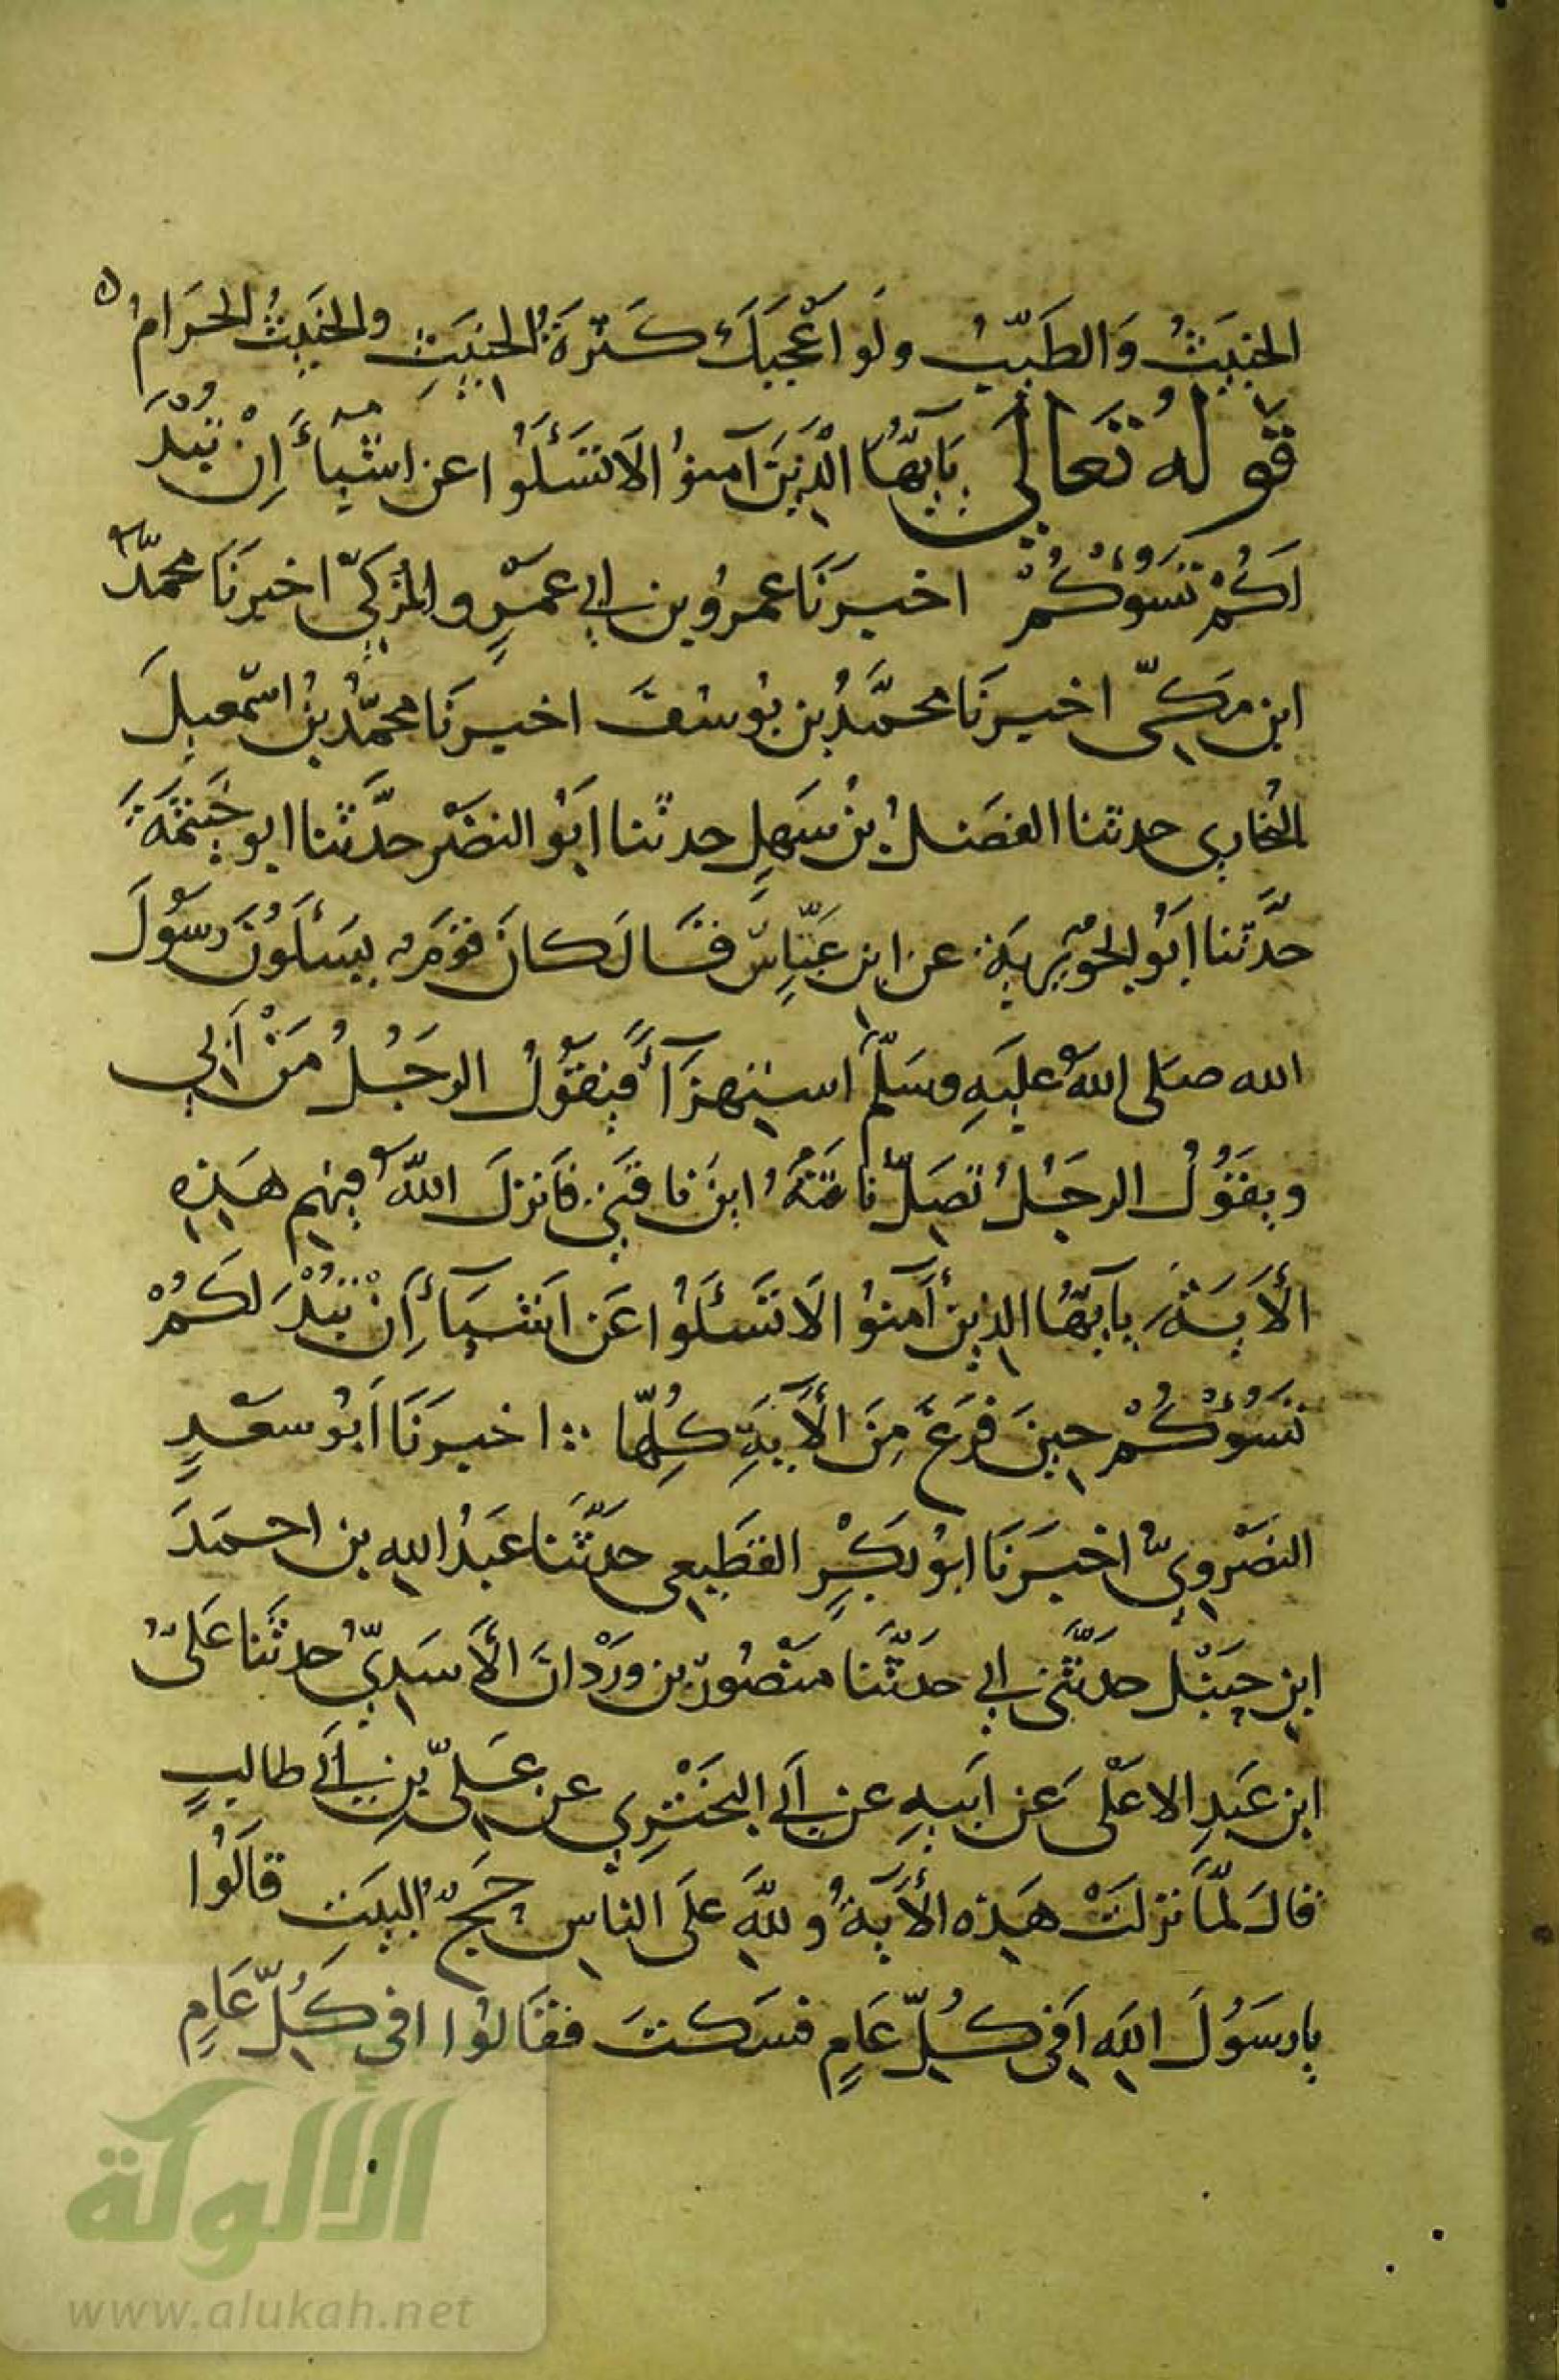 الخبيثُ وَالطَيّبُ ولَو اَعْجبَكَ كَثرَةُ الخبيَثِ والخَبيثُ الحَرَامُ ه
قَولهُ تَعَالَى يَايَهّا الَّذينَ آمنوُا لاَ تَسَئَلُوْا عن اشيآءَ اِنْ تبُدَ
لَكُمْ تَسَوُءْكُمْ اخبرَنَا عمرُو بن ابي عَمْرٍو المُزَكِيّ اخبرَنَا محمّد
ابن مَكيّ اخبرنَا محمَّدُ بن يوُسُفَ اخبرنَا محمّدُ بنُ اسمعيلَ
البُخاري حدثنا الفضَلُ بنُ سَهلٍ حدثنا ابَوُ النضْر حدَّثنا ابو خَيثَمَةَ
حدَّثنا ابَوُ الجوُيريَة عن ابنِ عَبّاسٍ قَالَ كانَ قومٌ يسَئَلوُنَ رسوُلَ
الله صَلى اللهُ عليَهِ وسَلّم استهزَآءً فيَقوُلُ الرجُلُ مَنْ اَبي
ويقَوُلُ الرجَلُ تضِلّ ناقتَهُ ابنَ ناقتَي فَانزلَ اللهُ فيهِم هَذِهِ
الأيَةَ يايَهّا الذينَ آمنوُا لاَ تَسَئَلوُا عَن اَشيَآءَ اِنْ تبُدْ لكَمُ
تسَوُءْكُمْ حينَ فَرغَ مِنَ الأيَةِ كُلِهّا ∴ اخبرَنَا ابَوُ سعَدٍ
النصَرْويّ اخبَرَنَا ابوُ بكَرٍ القطَيعي حدَثَّنا عَبدُ اللهِ بن احمدَ
ابنِ حنَبَل حدَثَّني ابي حدَثّنَا مَنصوُر بن وَرْدانَ الأَسَديّ حدثنَا عَلىُّ
ابن عَبدِ الاعَلْى عَن ابَيهِ عن ابَي البخَتَرِي عن عَليّ بنِ ابَي طالبٍ
قالَ لمّاَ نزلتَ هَذه الأيَةُ وللهِّ علَى الناسِ حجّ البيَتِ قَالَوُا
يا رسَوُلَ اللهِ افَي كُلّ عَامٍ فسَكتَ فقَالوُا افي كُلّ عَامٍ
الألوكة
www.alukah.net